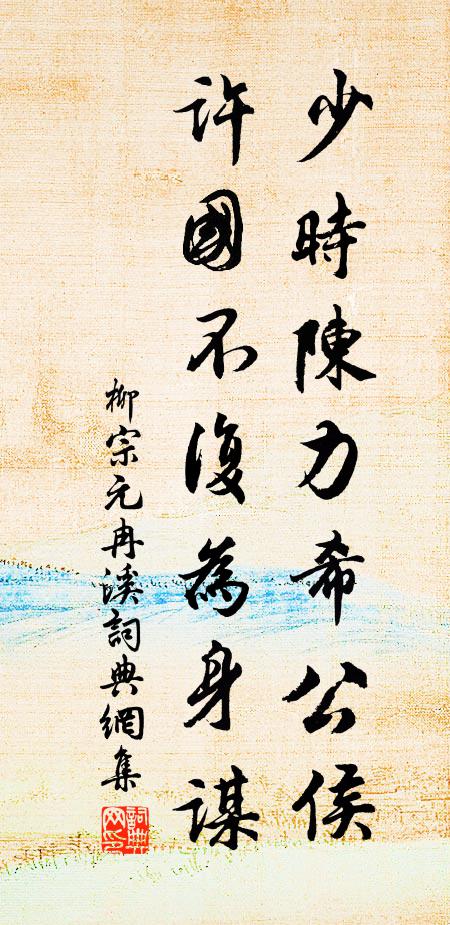 少時陳力希公侯
許國不復為身謀
柳宗元冉溪詞典網集
詞典網印